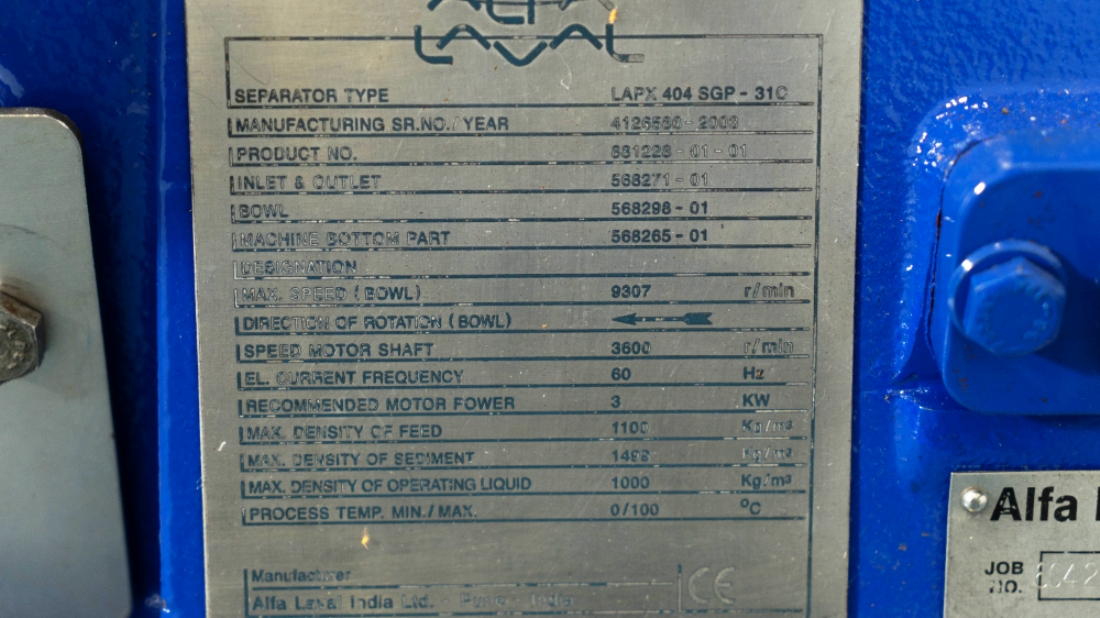 ALFA
LAVAL
SEPARATOR TYPE LAPX 404 SGP - 31C
MANUFACTURING SR.NO./YEAR
PRODUCT NO. 881228 - 01 - 01
INLET & OUTLET 568271 - 01
BOWL 568298 - 01
MACHINE BOTTOM PART 568265 - 01
DESIGNATION
MAX. SPEED (BOWL) 9307 r/min
DIRECTION OF ROTATION (BOWL)
SPEED MOTOR SHAFT 3600 r/min
EL. CURRENT FREQUENCY 60 Hz
RECOMMENDED MOTOR POWER 3 KW
MAX. DENSITY OF FEED 1100 Kg/m³
MAX. DENSITY OF SEDIMENT Kg/m³
MAX. DENSITY OF OPERATING LIQUID 1000 Kg/m³
PROCESS TEMP. MIN./MAX. 0/100 °C
Manufacturer
Alfa Laval India Ltd. - Pune - India
CE
Alfa
JOB
NO.